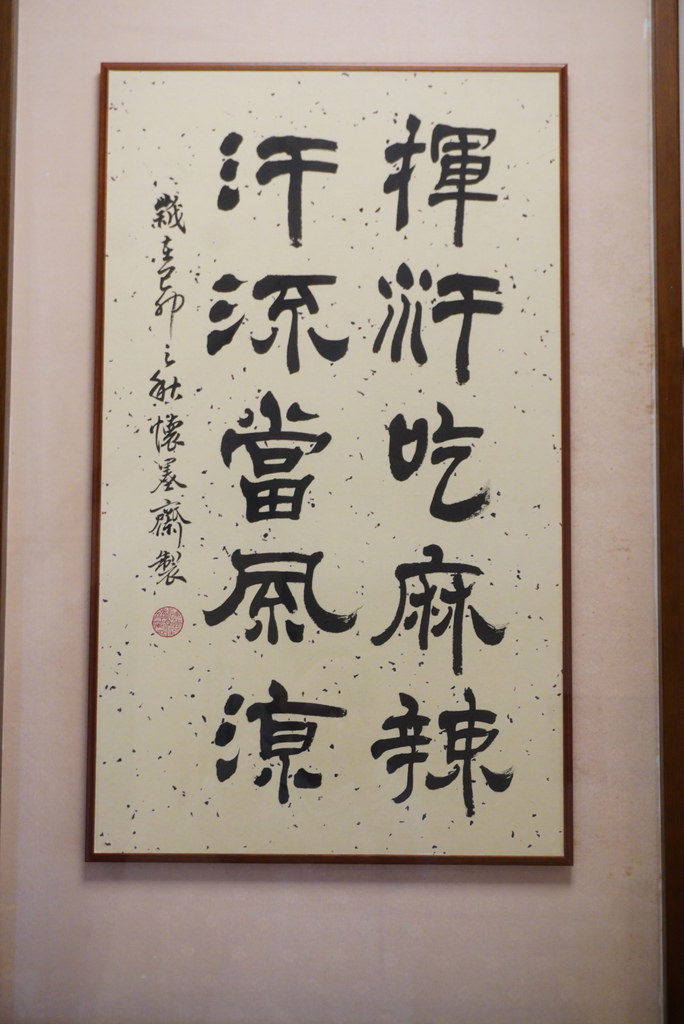 揮汗吃麻辣
汗流當風涼
歲在己卯之秋懷墨齋製